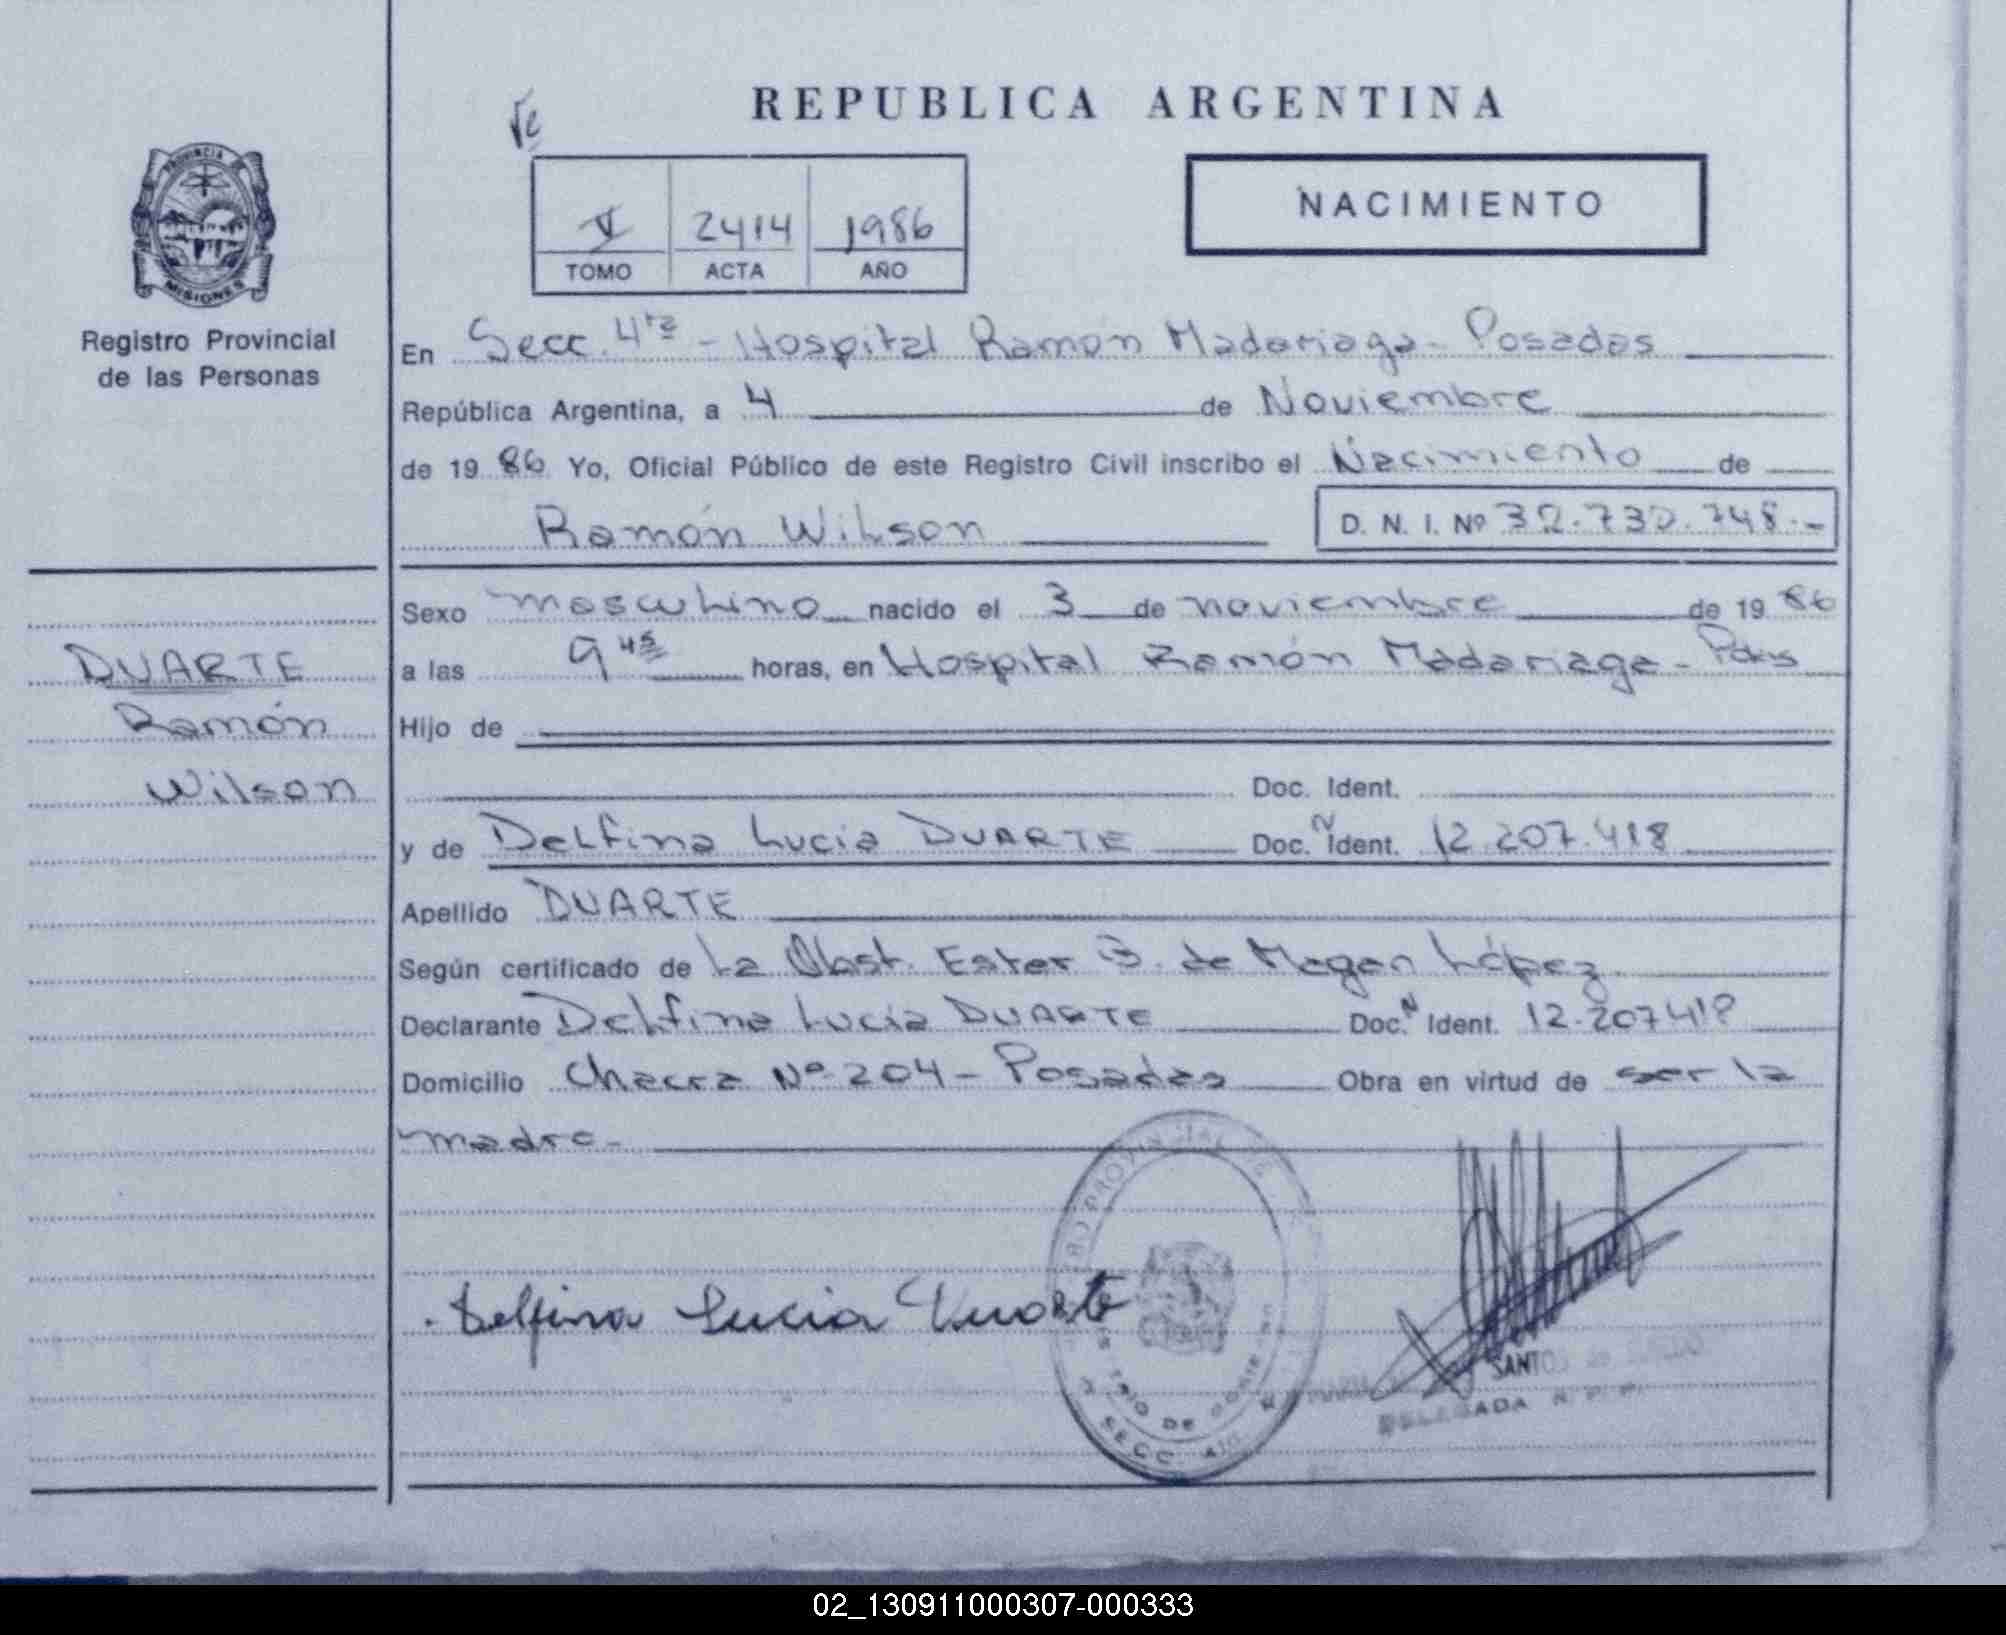 REPUBLICA ARGENTINA
PROVINCIA DE
MISIONES
Registro Provincial
de las Personas
V 2414 1986
TOMO ACTA AÑO
NACIMIENTO
En Secc. 4ta - Hospital Ramón Madariaga - Posadas
República Argentina, a 4 de Noviembre
de 19 86 Yo, Oficial Público de este Registro Civil inscribo el Nacimiento de
Ramón Wilson D. N. I. Nº 32.730.748.-
Sexo masculino nacido el 3 de noviembre de 19 86
DUARTE
Ramón
Wilson
a las 9 45 horas, en Hospital Ramón Madariaga - Pdas
Hijo de
Doc. Ident.
y de Delfina Lucía DUARTE Doc. N Ident. 12.207.418
Apellido DUARTE
Según certificado de la Obst. Ester B. de Magan López
Declarante Delfina Lucía DUARTE Doc. N Ident. 12.207418
Domicilio Chacra Nº 204 - Posadas Obra en virtud de ser la
madre.-
Delfina Lucia Duarte
PROVINCIAL DE
SECC. 4ta
SANTOS de
DELEGADA R. P. P.
02_130911000307-000333